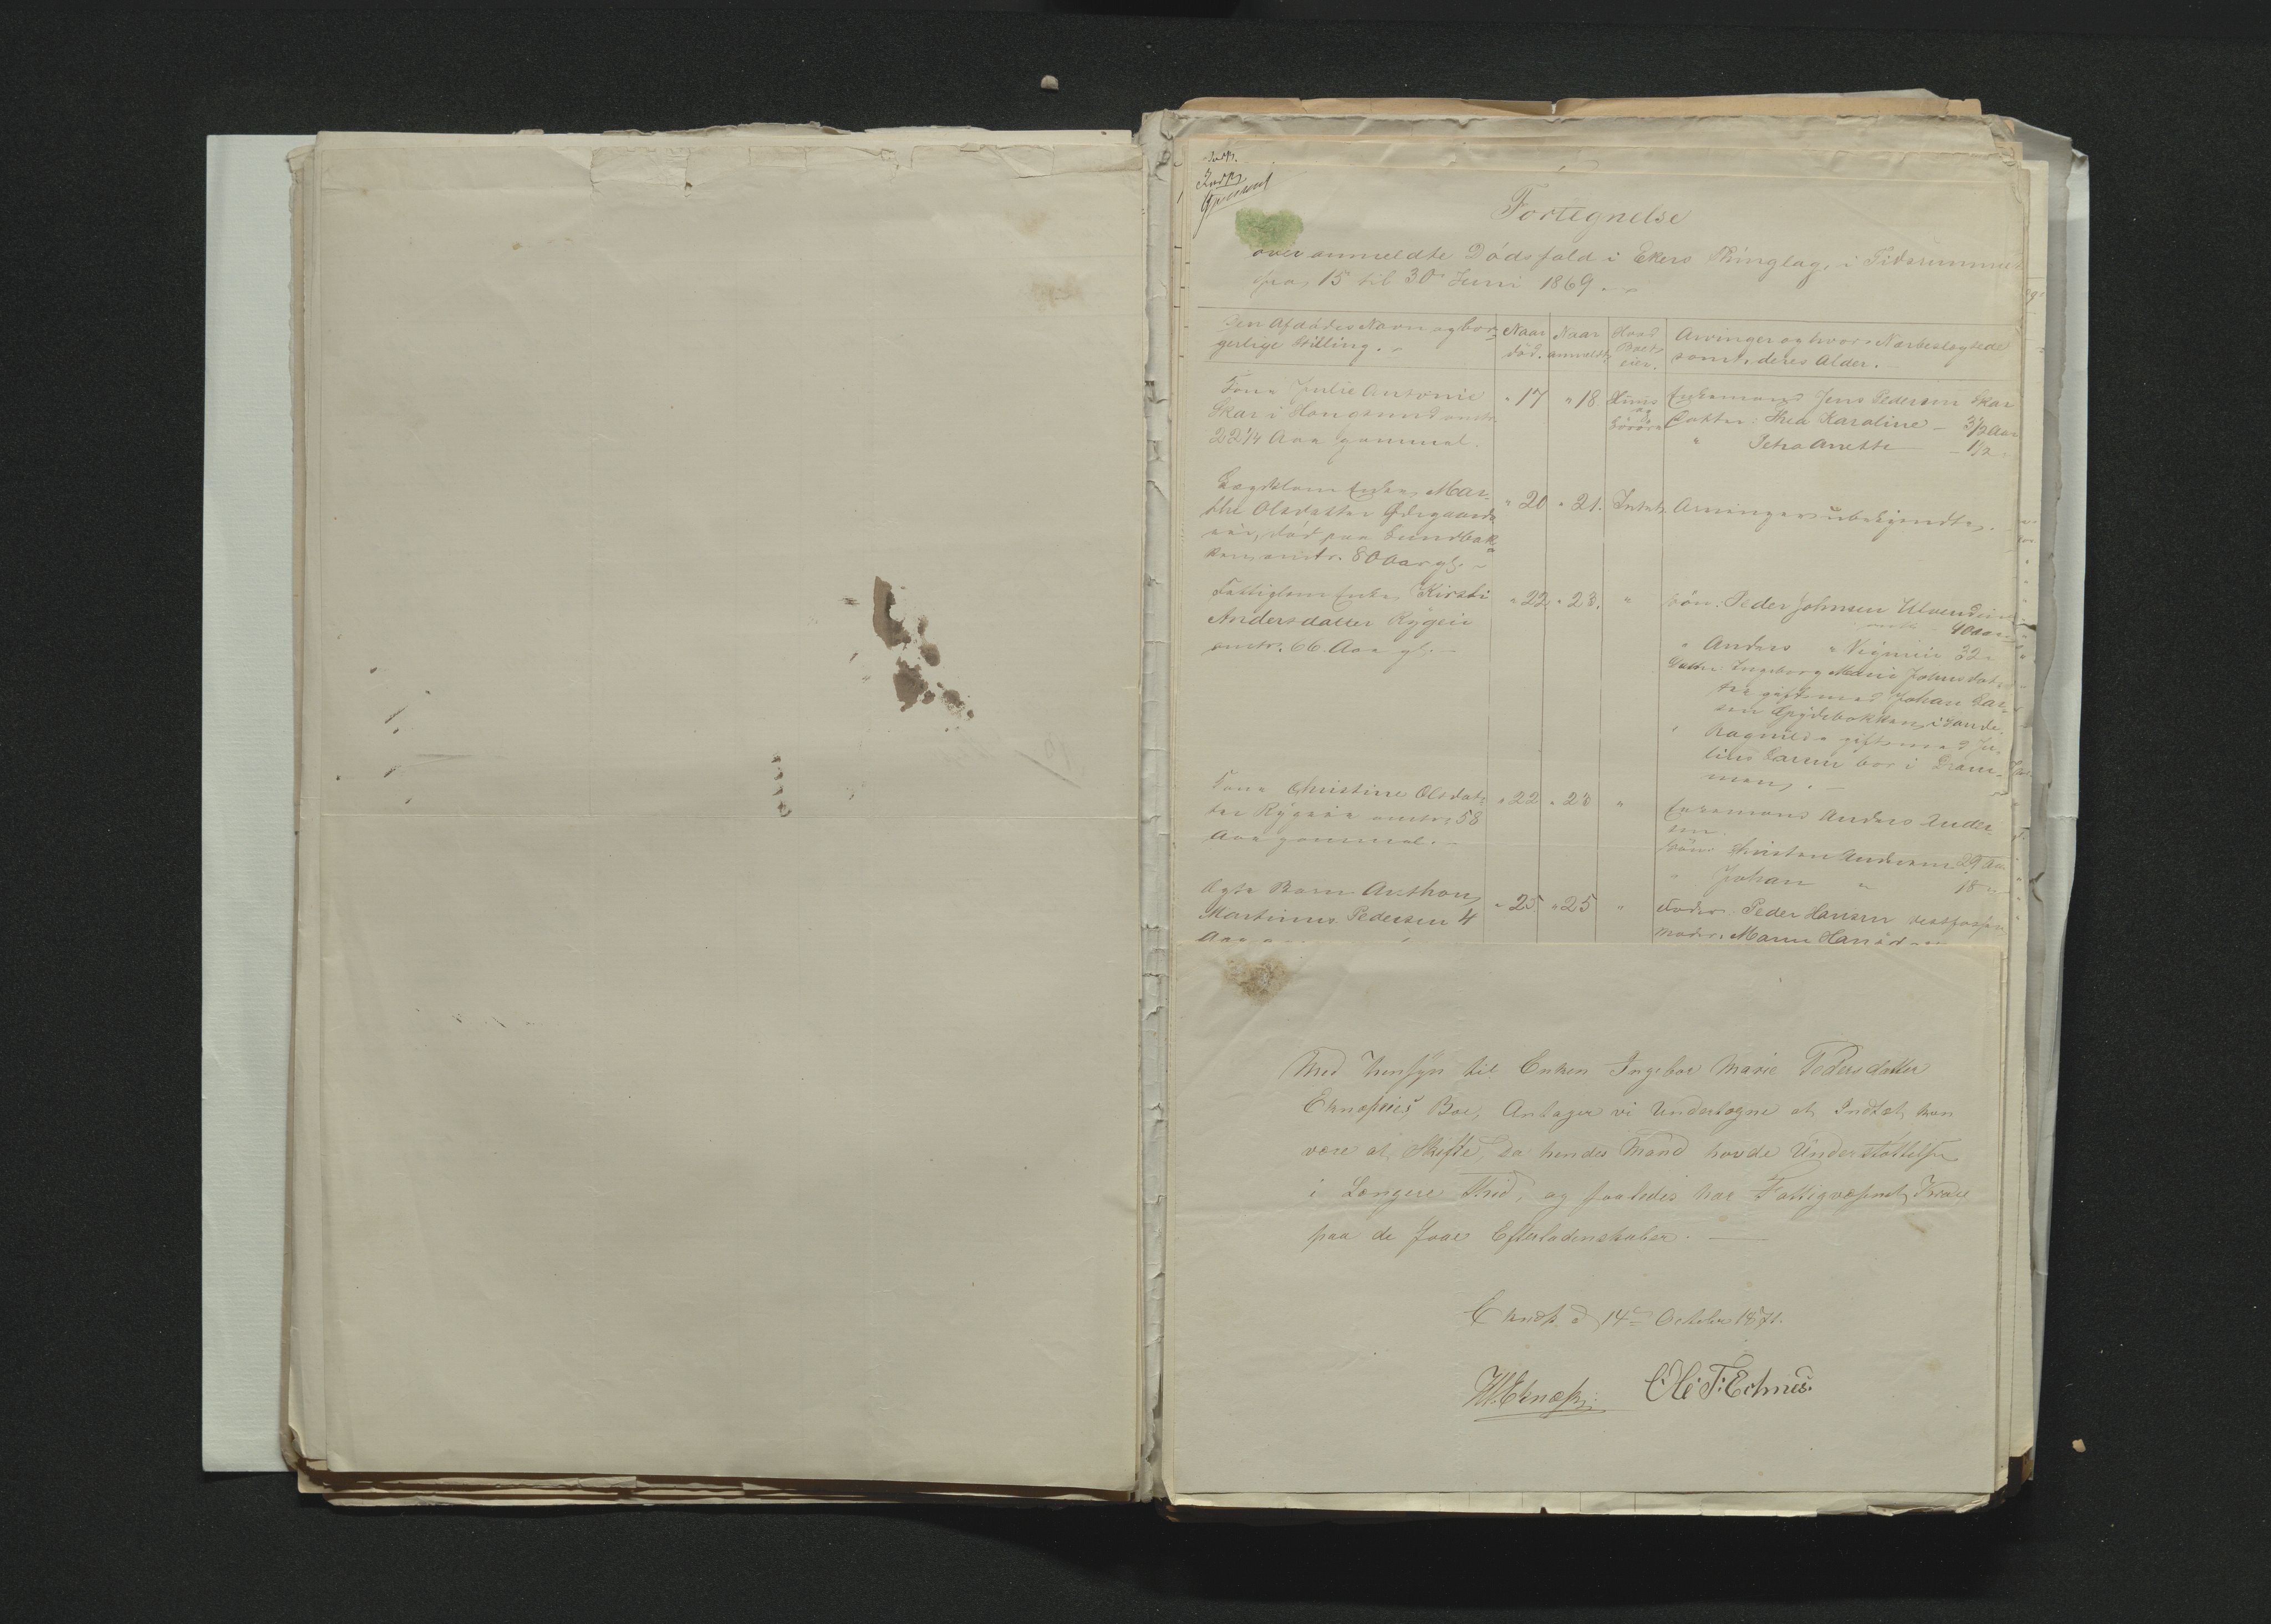 Fortegnelse
over anmeldte Dødsfald i Ekers Thinglag, i Tidsrummet
fra 15 til 30 Juni 1869.
Den Afdødes Navn og bor-
gerlige Stilling.
Naar
død.
Naar
anmeldt
Hvad
Boet
eier.
Arvinger og hvor Nærbeslægtede
samt deres Alder.
Kone Julie Antonie
Skar i Hougsund omtr.
22 1/4 Aar gammel.
" 17
" 18
Huus
og
Løsøre
Enkemand Jens Pedersen Skar
Datter: Thea Karoline — 3 1/2 Aar
" Petra Anette — 1 1/2
Lægdslem Enke Mar-
the Olsdatter
død paa Sundbak-
ken, omtr. 80 Aar gl.
" 20
" 21.
Intet
Arvinger ubekjendte.
Fattiglem Enke Kirsti
Andersdatter Rygeie
omtr. 66 Aar gl.
" 22
" 23.
"
Søn: Peder Johnsen
40 Aar
" Anders " 32
Datter Ingeborg Marie Johnsdat-
ter gift med Johan Lar-
sen i Sande,
" Ragnild gift med Ju-
lius Larsen bor i Dram-
men.
Kone Christine Olsdat-
ter omtr. 58
Aar gammel.
" 22
" 23
"
Enkemand Anders Ander-
sen.
Søn Christen Andersen 29 Aar
" Johan " 18 "
Ægte Barn Anthon
Martinus Pedersen 4
Aar
" 25
" 25
"
Fader: Peder Hansen Vestfossen
Moder: Maren
Med Hensyn til Enken Ingebor Marie Pedersdatter
Eknæseies Boe, Antager vi Undertegne at Indtet kan
være at Skifte, da hendes Mand havde Understøttelse
i Længere Thid, og saaledes har Fattigvæsenet Krav
paa de faae Efterladenskaber. —
Eknæs d 14de October 1871.
H. Eknæs. Ole T: Eknes.